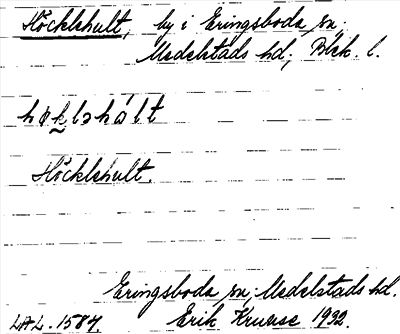 Höcklehult, by i Eringsboda sn.
Medelstads hd., Blek. l.
Höcklehult.
Eringsboda sn, Medelstads hd.
LAL. 1587. Erik Kruuse 1932